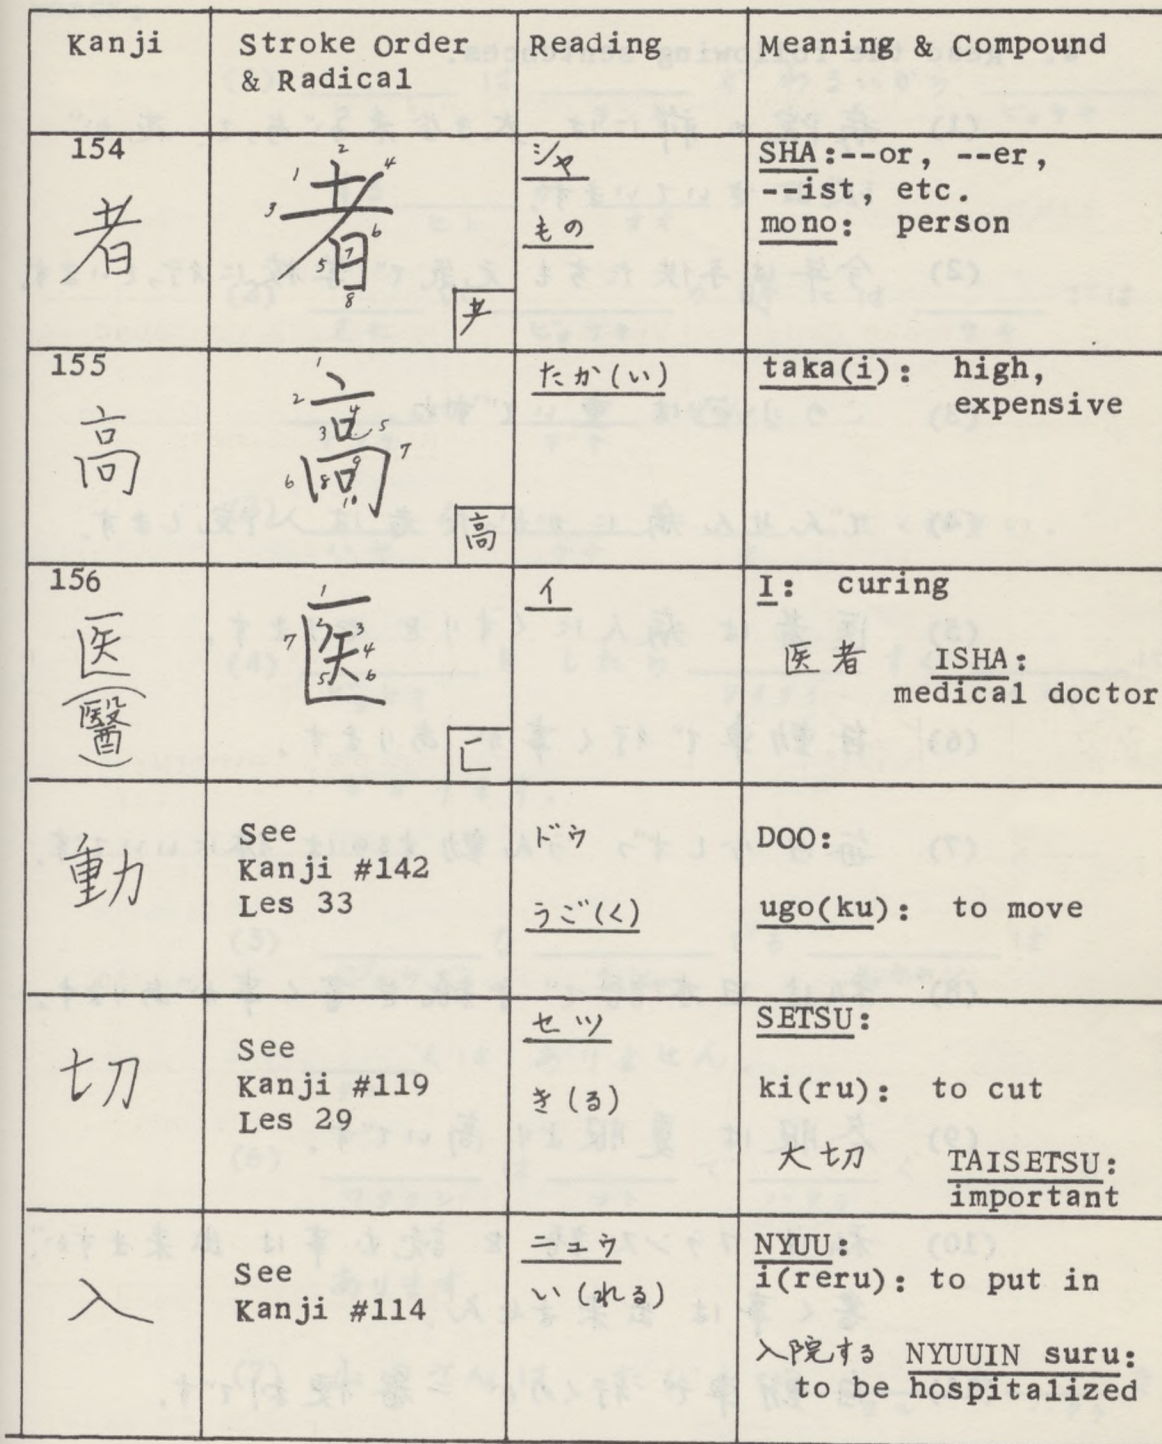 Kanji
Stroke Order
& Radical
Reading
Meaning & Compound
154
者
1 2 3 4 5 6 7 8
者
耂
シャ
もの
SHA:--or, --er,
--ist, etc.
mono: person
155
高
1 2 3 4 5 6 7 8 9 10
高
高
たか(い)
taka(i): high,
expensive
156
医
(醫)
1 2 3 4 5 6 7
医
匚
イ
I: curing
医者 ISHA:
medical doctor
動
See
Kanji #142
Les 33
ドウ
うご(く)
DOO:
ugo(ku): to move
切
See
Kanji #119
Les 29
セツ
き(る)
SETSU:
ki(ru): to cut
大切 TAISETSU:
important
入
See
Kanji #114
ニュウ
い(れる)
NYUU:
i(reru): to put in
入院する NYUUIN suru:
to be hospitalized